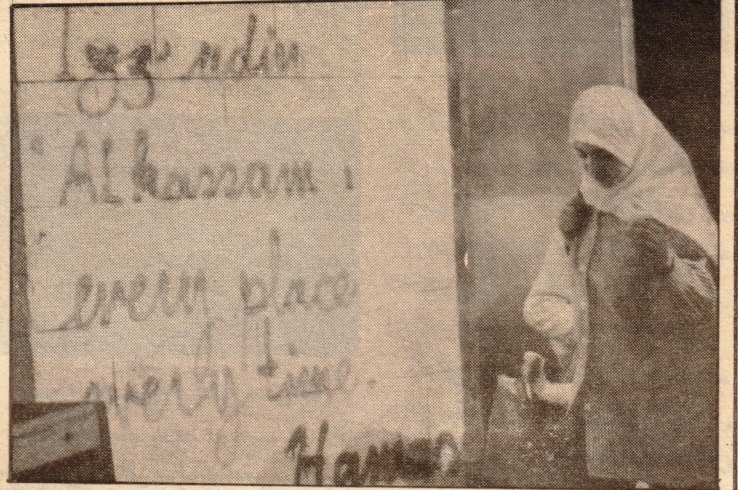 Izz' ndin
"Alkassam"
every place
everly time.
Hamas